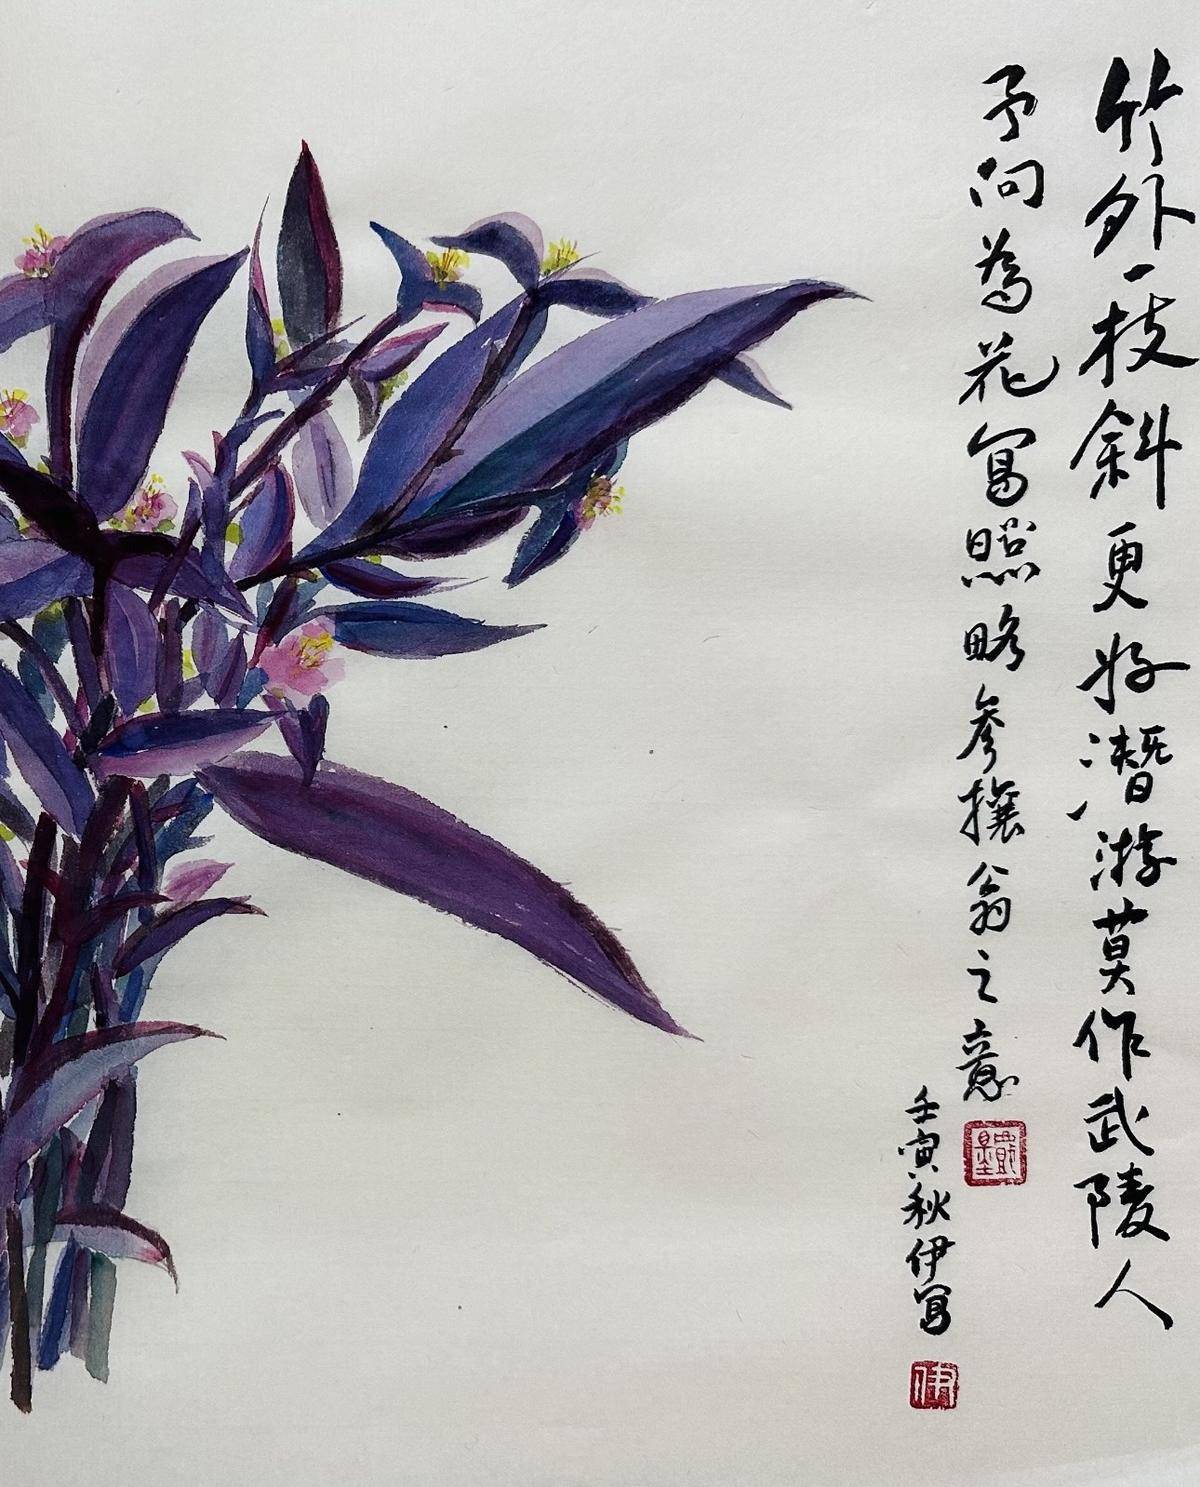 竹外一枝斜更好潛游莫作武陵人
予向為花寫照略參攘翁之意
壬寅秋伊寫
伊